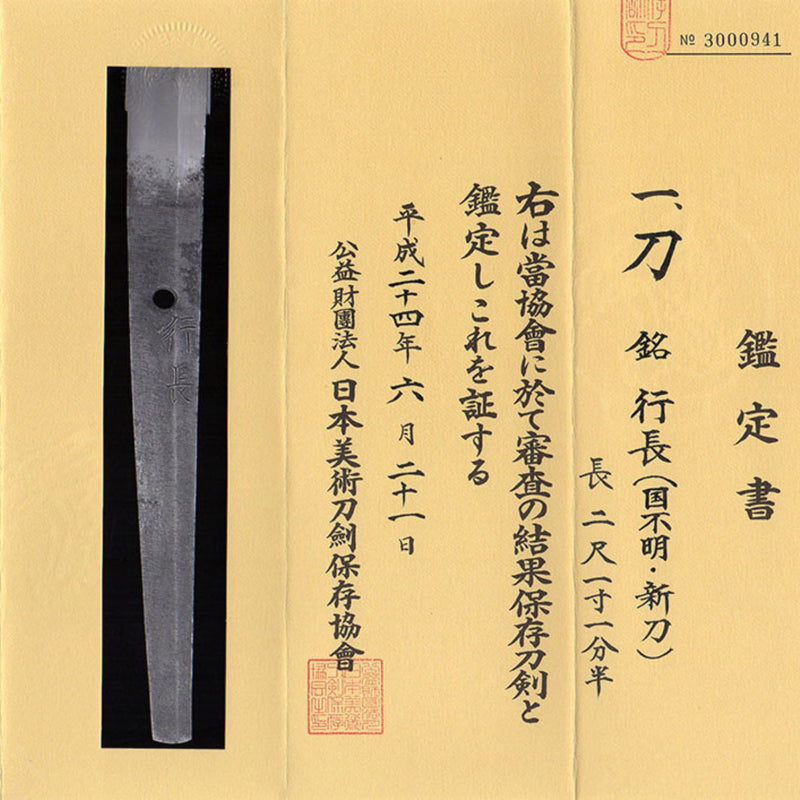 № 3000941
鑑定書
一、刀 銘 行長(国不明・新刀)
長 二尺一寸一分半
右は當協會に於て審査の結果保存刀剣と
鑑定しこれを証する
平成二十四年六月二十一日
公益財團法人日本美術刀劍保存協會
行長